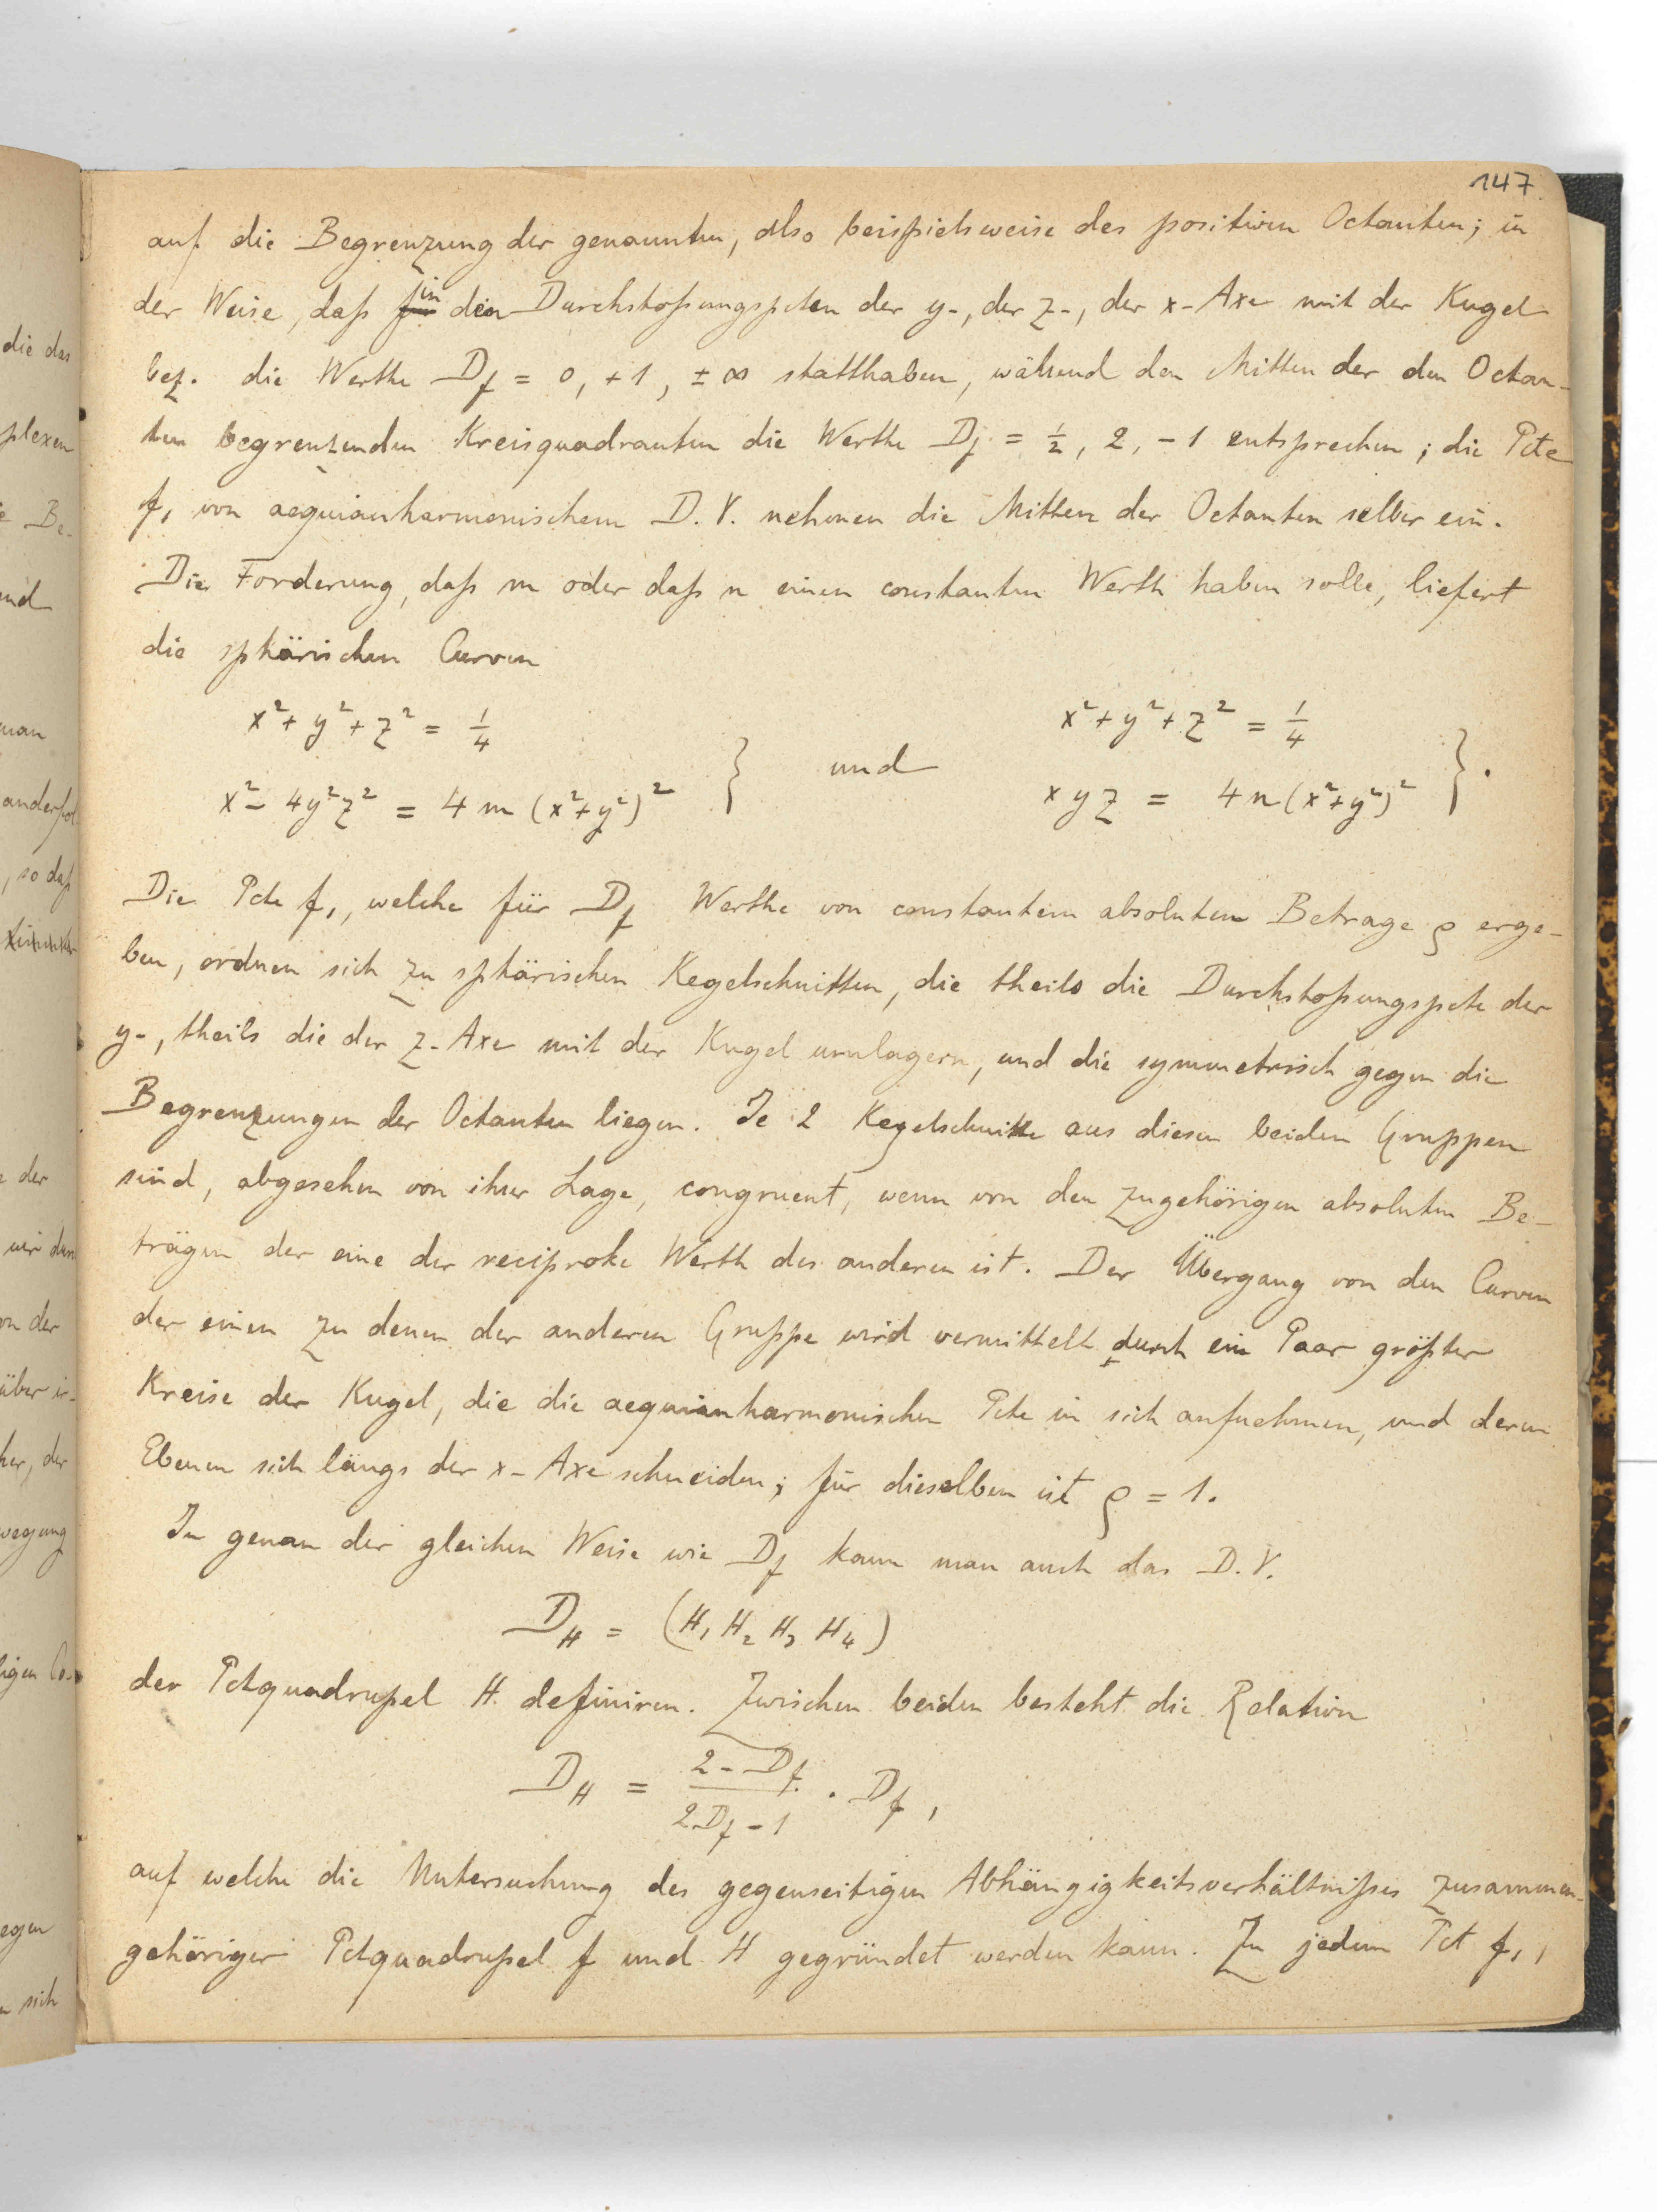 147.
auf die Begrenzung der genannten, also beispielsweise des positiven Octanten; in
der Weise, daß in den Durchstoßungspcten der y-, der z-, der x-Axe mit der Kugel
bez. die Werthe D_f = 0, +1, ±∞ statthaben, während den Mitten der den Octan-
ten begrenzenden Kreisquadranten die Werthe D_f = 1/2, 2, -1 entsprechen; die Pcte
f₁ von aequianharmonischem D.V. nehmen die Mitten der Octanten selber ein.
Die Forderung, daß m oder daß n einen constanten Werth haben solle, liefert
die sphärischen Curven
x²+y²+z² = 1/4 x²+y²+z² = 1/4
} und }.
x²-4y²z² = 4m(x²+y²)² xyz = 4n(x²+y²)²
Die Pcte f₁, welche für D_f Werthe von constantem absoluten Betrage ρ erge-
ben, ordnen sich zu sphärischen Kegelschnitten, die theils die Durchstoßungspcte der
y-, theils die der z-Axe mit der Kugel umlagern, und die symmetrisch gegen die
Begrenzungen der Octanten liegen. Je 2 Kegelschnitte aus diesen beiden Gruppen
sind, abgesehen von ihrer Lage, congruent, wenn von den zugehörigen absoluten Be-
trägen der eine der reciproke Werth des anderen ist. Der Übergang von den Curven
der einen zu denen der anderen Gruppe wird vermittelt durch ein Paar größter
Kreise der Kugel, die die aequianharmonischen Pcte in sich aufnehmen, und deren
Ebenen sich längs der x-Axe schneiden; für dieselben ist ρ = 1.
In genau der gleichen Weise wie D_f kann man auch das D.V.
D_H = (H₁ H₂ H₃ H₄)
der Pctquadrupel H definiren. Zwischen beiden besteht die Relation
D_H = (2 - D_f)/(2D_f - 1) · D_f,
auf welche die Untersuchung des gegenseitigen Abhängigkeitsverhältnißes zusammen-
gehöriger Pctquadrupel f und H gegründet werden kann. Zu jedem Pct f₁,